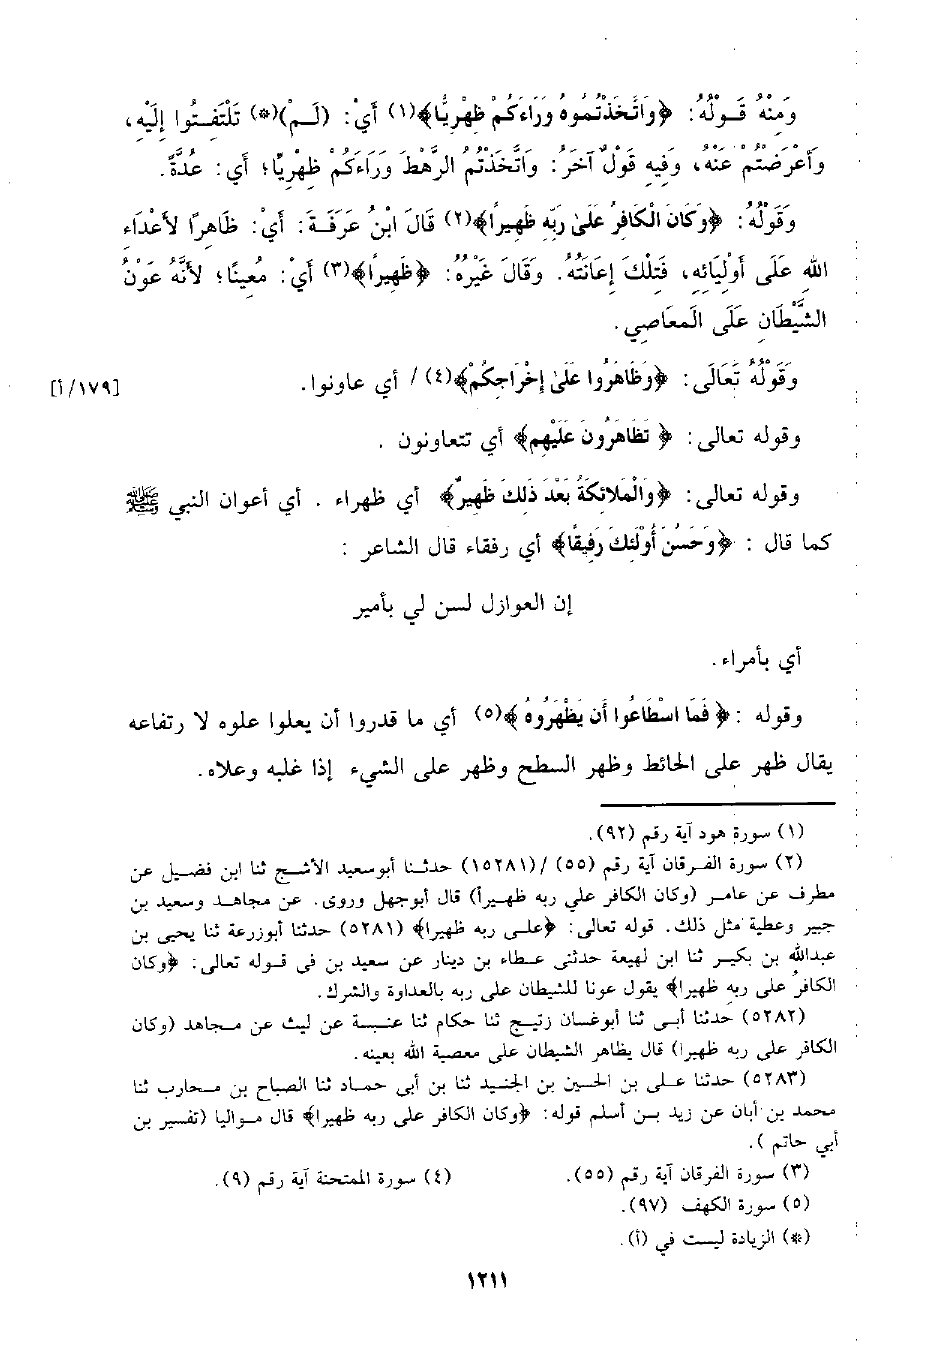 وَمِنْهُ قَوْلُهُ: ﴿وَاتَّخَذْتُمُوهُ وَرَاءَكُمْ ظِهْرِيًّا﴾(١) أَيْ: (لَمْ)(*) تَلْتَفِتُوا إِلَيْهِ،
وَأَعْرَضْتُمْ عَنْهُ، وَفِيهِ قَوْلٌ آخَرُ: وَاتَّخَذْتُمُ الرَّهْطَ وَرَاءَكُمْ ظِهْرِيًّا؛ أَي: عُدَّةً.
وَقَوْلُهُ: ﴿وَكَانَ الْكَافِرُ عَلَىٰ رَبِّهِ ظَهِيرًا﴾(٢) قَالَ ابْنُ عَرَفَةَ: أَيْ: ظَاهِرًا لأَعْدَاءِ
اللهِ عَلَى أَوْلِيَائِهِ، فَتِلْكَ إِعَانَتُهُ. وَقَالَ غَيْرُهُ: ﴿ظَهِيرًا﴾(٣) أَيْ: مُعِينًا؛ لأَنَّهُ عَوْنُ
الشَّيْطَانِ عَلَى الْمَعَاصِي.
وَقَوْلُهُ تَعَالَى: ﴿وَظَاهَرُوا عَلَىٰ إِخْرَاجِكُمْ﴾(٤) / أي عاونوا. [١٧٩/أ]
وقوله تعالى: ﴿ تَظَاهَرُونَ عَلَيْهِم﴾ أي تتعاونون .
وقوله تعالى: ﴿وَالْمَلائِكَةُ بَعْدَ ذَلِكَ ظَهِيرٌ﴾ أي ظهراء . أي أعوان النبي ﷺ
كما قال : ﴿وَحَسُنَ أُوْلَئِكَ رَفِيقًا﴾ أي رفقاء قال الشاعر :
إن العوازل لسن لي بأمير
أي بأمراء.
وقوله :﴿ فَمَا اسْطَاعُوا أَن يَظْهَرُوهُ ﴾(٥) أي ما قدروا أن يعلوا علوه لا رتفاعه
يقال ظهر على الحائط وظهر السطح وظهر على الشيء إذا غلبه وعلاه.
(١) سورة هود آية رقم (٩٢).
(٢) سورة الفرقان آية رقم (٥٥) /(١٥٢٨١) حدثنا أبوسعيد الأشج ثنا ابن فضيل عن
مطرف عن عامر (وكان الكافر علي ربه ظهيراً) قال أبوجهل وروى. عن مجاهد وسعيد بن
جبير وعطية مثل ذلك. قوله تعالى: ﴿على ربه ظهيرا﴾ (٥٢٨١) حدثنا أبوزرعة ثنا يحيى بن
عبدالله بن بكير ثنا ابن لهيعة حدثنى عطاء بن دينار عن سعيد بن فى قوله تعالى: ﴿وكان
الكافر على ربه ظهيرا﴾ يقول عونا للشيطان على ربه بالعداوة والشرك.
(٥٢٨٢) حدثنا أبى ثنا أبوغسان زنيج ثنا حكام ثنا عنبسة عن ليث عن مجاهد (وكان
الكافر على ربه ظهيرا) قال يظاهر الشيطان على معصية الله بعينه.
(٥٢٨٣) حدثنا على بن الحسين بن الجنيد ثنا بن أبى حماد ثنا الصباح بن محارب ثنا
محمد بن أبان عن زيد بن أسلم قوله: ﴿وكان الكافر على ربه ظهيرا﴾ قال مواليا (تفسير بن
أبي حاتم ).
(٣) سورة الفرقان آية رقم (٥٥). (٤) سورة الممتحنة آية رقم (٩).
(٥) سورة الكهف (٩٧).
(*) الزيادة ليست في (أ).
١٢١١